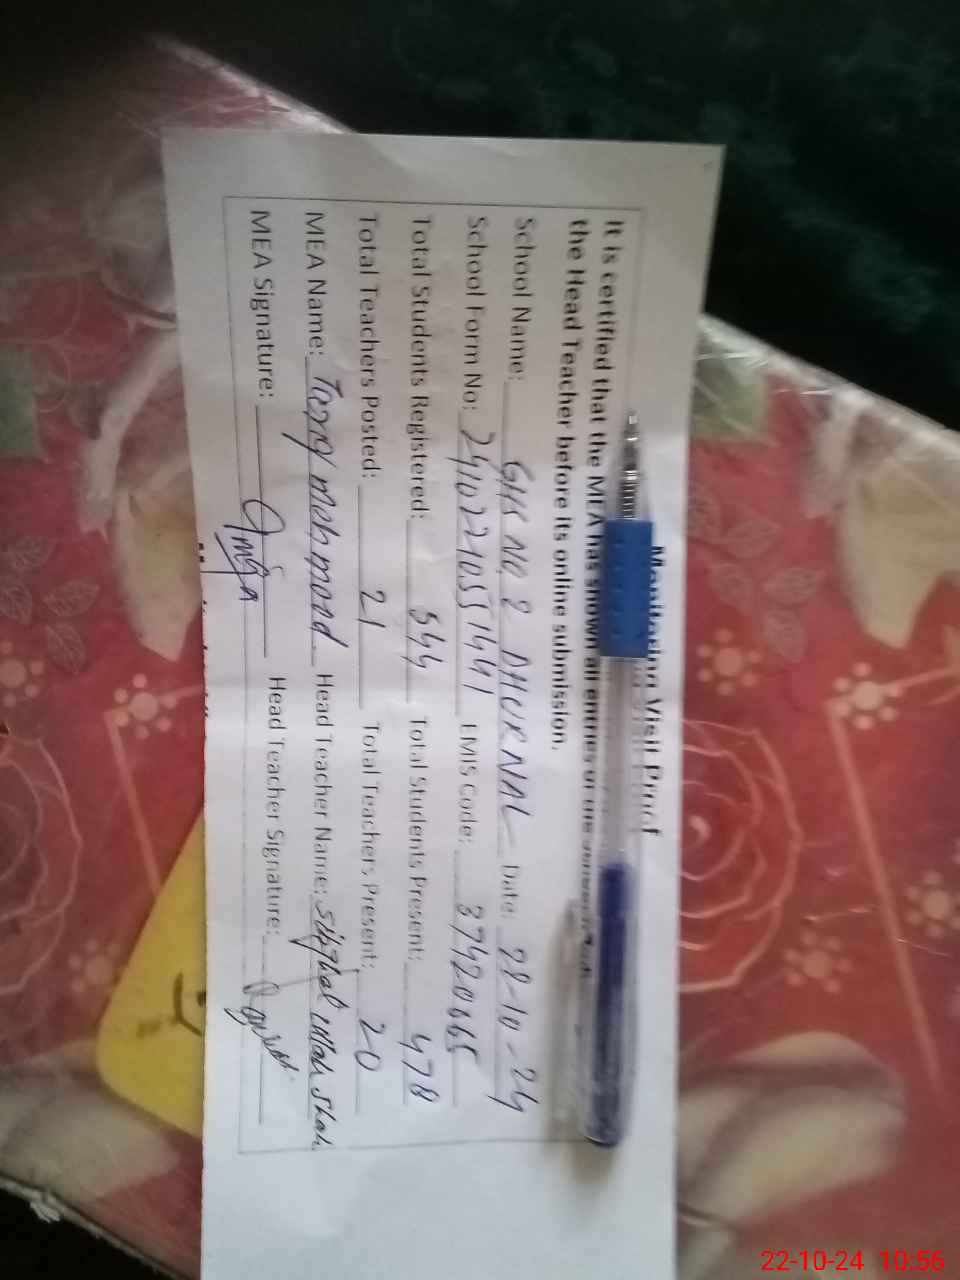 Monitoring Visit Proof
It is certified that the MEA has shown all entries of the
the Head Teacher before its online submission.
School Name: GHS NO. 2 DHURNAL Date: 28-10-24
School Form No: EMIS Code:
Total Students Registered: 544 Total Students Present: 478
Total Teachers Posted: 21 Total Teachers Present: 20
MEA Name: Tariq mahmood Head Teacher Name: Sibghat ullah Shah
MEA Signature: Head Teacher Signature:
22-10-24 10:56